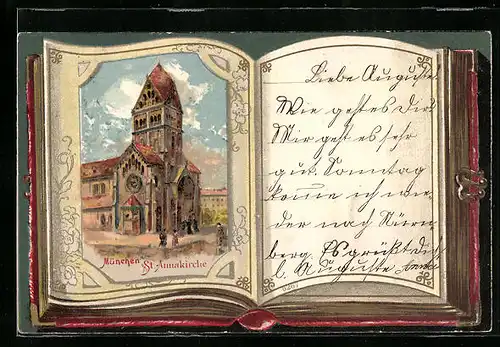 München
St. Annakirche
Liebe Auguste!
Wie geht es Dir?
Mir geht es sehr
gut. Sonntag
komme ich wie
der nach Nürn
berg. Es grüßt Dich
Auguste